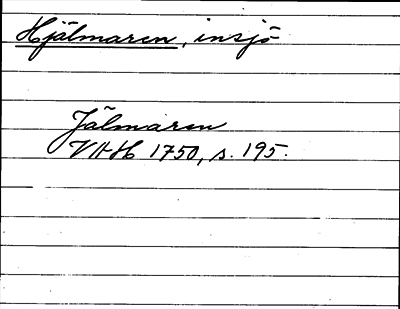 Hjälmaren, insjö
Jälmaren
VAH 1750, s. 195.